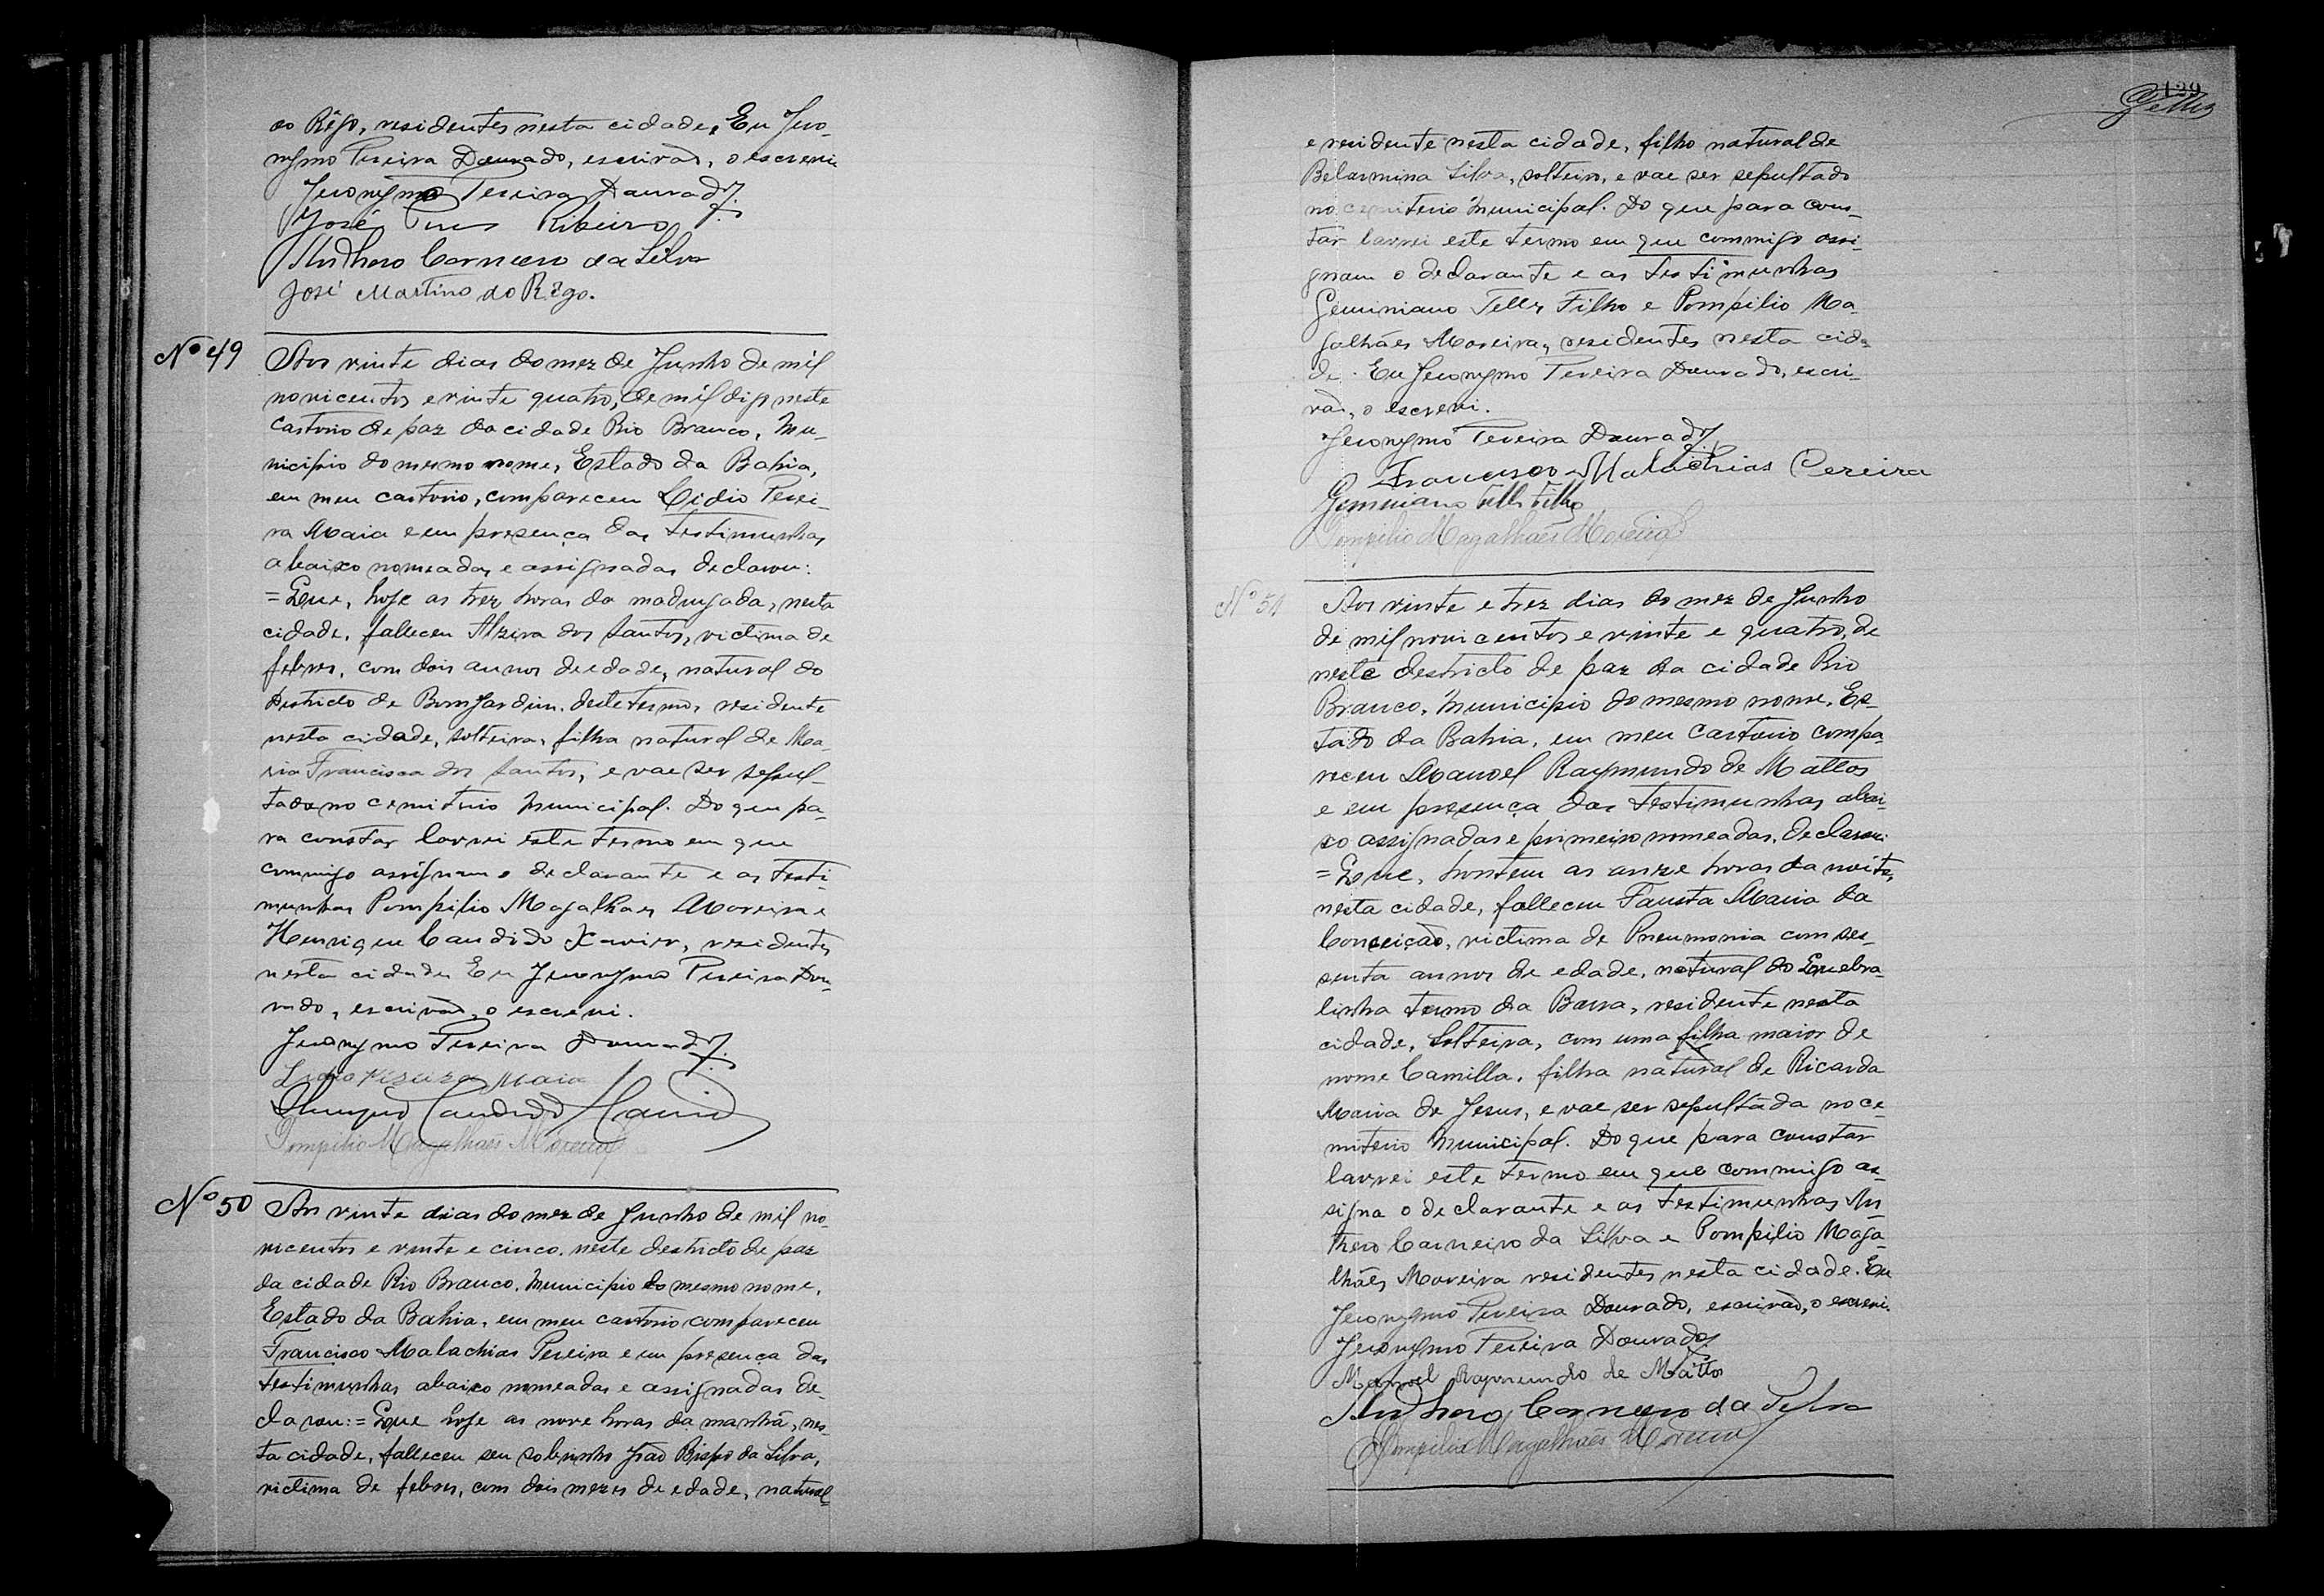 do Rêgo, residentes nesta cidade, Eu Jero-
nymo Pereira Dourado, escrivão, o escrevi
Jeronymo Pereira Dourado
José Pires Ribeiro
Anthero Carneiro da Silva
José Martins do Rêgo.
Nº 49
Aos vinte dias do mez de Junho de mil
novicentos e vinte quatro, de mil digo neste
Cartorio de paz da cidade Rio Branco, Mu-
nicipio do mesmo nome, Estado da Bahia,
em meu cartorio, compareceu Lidio Perei-
ra Maia e em presença das testimunhas
abaixo nomeadas e assignadas declarou:
=Que, hoje as trez horas da madrugada, nesta
cidade, falleceu Alzira dos Santos, victima de
febres, com dois annos de edade, natural do
destricto de Bom Jardim, deste termo, residente
nesta cidade, solteira, filha natural de Ma-
ria Francisca dos Santos, e vae ser sepul-
tada no cemiterio Municipal. Do que pa-
ra constar lavrei este termo em que
commigo assignam o declarante e as testi-
munhas Pompilio Magalhaes Moreira e
Henrique Candido Xavier, residentes
nesta cidade Eu Jeronymo Pereira Dou-
rado, escrivão, o escrevi.
Jeronymo Pereira Dourado
Lidio Pereira Maia
Henrique Candido Xavier
Pompilio Magalhães Moreira
Nº 50
Aos vinte dias do mez de Junho de mil no-
vicentos e vinte e cinco, neste destricto de paz
da cidade Rio Branco, Municipio do mesmo nome,
Estado da Bahia, em meu cartorio compareceu
Francisco Malachias Pereira e em presença das
testimunhas abaixo nomeadas e assignadas de-
clarou:=Que hoje as nove horas da manhã, nes-
ta cidade, falleceu seu sobrinho João Bispo da Silva,
victima de febres, com dois mezes de edade, natural
129
Telles
e residente nesta cidade, filho natural de
Belarmina Silva, solteiro, e vae ser sepultado
no cemiterio Municipal. Do que para cons-
tar lavrei este termo em que commigo assi-
gnam o declarante e as testimunhas
Geminiano Telles Filho e Pompilio Ma-
galhães Moreira, residentes nesta cida-
de. Eu Jeronymo Pereira Dourado, escri-
vão, o escrevi.
Jeronymo Pereira Dourado
Francisco Malachias Pereira
Geminiano Telles Filho
Pompilio Magalhães Moreira
Nº 51
Aos vinte e trez dias do mez de Junho
de mil novicentos e vinte e quatro, de
neste destricto de paz da cidade Rio
Branco, Municipio do mesmo nome, Es-
tado da Bahia, em meu Cartorio compa-
receu Manoel Raymundo de Mattos
e em presença das testimunhas abai-
xo assignadas e primeiro nomeadas, declarou:
=Que, hontem as onze horas da noite,
nesta cidade, falleceu Fausta Maria da
Conceição, victima de Pneumonia com ses-
senta annos de edade, natural do Quebra-
linha termo da Barra, residente nesta
cidade, Solteira, com uma filha maior de
nome Camilla, filha natural de Ricarda
Maria de Jesus, e vae ser sepultada no ce-
miterio Municipal. Do que para constar
lavrei este termo em que commigo as-
signa o declarante e as testimunhas An-
thero Carneiro da Silva e Pompilio Maga-
lhães Moreira residentes nesta cidade. Eu
Jeronymo Pereira Dourado, escrivão, o escrevi.
Jeronymo Pereira Dourado
Manoel Raymundo de Mattos
Anthero Carneiro da Silva
Pompilio Magalhães Moreira